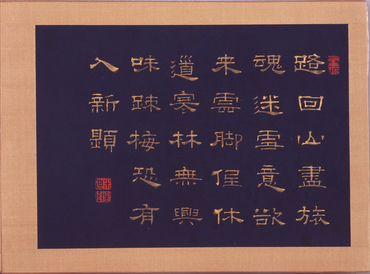 路回山盡旅
魂迷雪意欲
来雲脚偓休
道寒林無興
味疎梅恐有
入新題